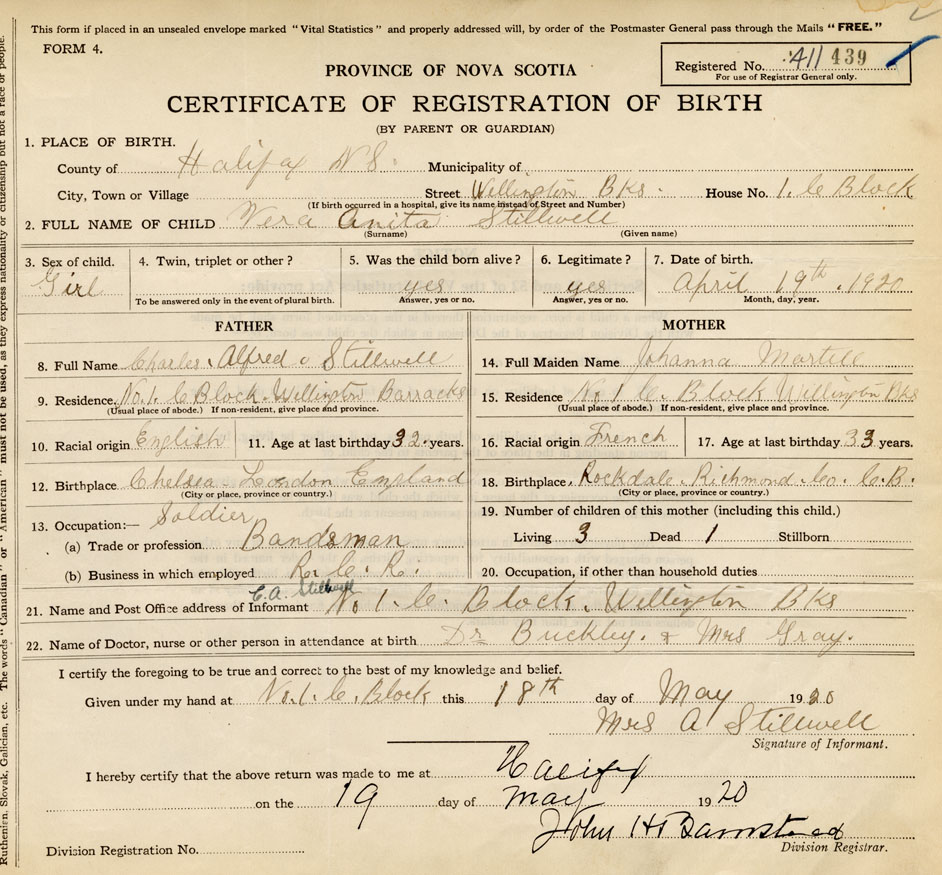 This form if placed in an unsealed envelope marked "Vital Statistics" and properly addressed will, by order of the Postmaster General pass through the Mails "FREE."
FORM 4.
Registered No. 411 439
For use of Registrar General only.
PROVINCE OF NOVA SCOTIA
CERTIFICATE OF REGISTRATION OF BIRTH
(BY PARENT OR GUARDIAN)
1. PLACE OF BIRTH.
County of Halifax N S. Municipality of
City, Town or Village Street Wellington Bks. House No. 1. C Block
(If birth occurred in a hospital, give its name instead of Street and Number)
2. FULL NAME OF CHILD Vera Anita Stillwell
(Surname) (Given name)
3. Sex of child. 4. Twin, triplet or other? 5. Was the child born alive? 6. Legitimate? 7. Date of birth.
Girl yes yes April 19th. 1920
To be answered only in the event of plural birth. Answer, yes or no. Answer, yes or no. Month, day, year.
FATHER MOTHER
8. Full Name Charles Alfred Stillwell 14. Full Maiden Name Johanna Martell
9. Residence. No. 1. C Block. Wellington Barracks 15. Residence No 1 C. Block Wellington Bks
(Usual place of abode.) If non-resident, give place and province. (Usual place of abode.) If non-resident, give place and province.
10. Racial origin English 11. Age at last birthday 32. years. 16. Racial origin French 17. Age at last birthday 33 years.
12. Birthplace Chelsea. London England 18. Birthplace. Rockdale. Richmond. Co. C.B.
(City or place, province or country.) (City or place, province or country.)
13. Occupation:— Soldier 19. Number of children of this mother (including this child.)
(a) Trade or profession Bandsman Living 3 Dead 1 Stillborn
(b) Business in which employed R. C. R. 20. Occupation, if other than household duties
C.A. Stillwell
21. Name and Post Office address of Informant No 1. C. Block. Wellington Bks
22. Name of Doctor, nurse or other person in attendance at birth Dr Buckley. & Mrs Gray.
I certify the foregoing to be true and correct to the best of my knowledge and belief.
Given under my hand at No. 1. C. Block this 18th day of May 1920
Mrs A Stillwell
Signature of Informant.
I hereby certify that the above return was made to me at Halifax
on the 19 day of May 1920
John H Barnstead
Division Registrar.
Division Registration No.
Ruthenien, Slovak, Galician, etc. The words "Canadian" or "American" must not be used, as they express nationality or citizenship but not a race or people.